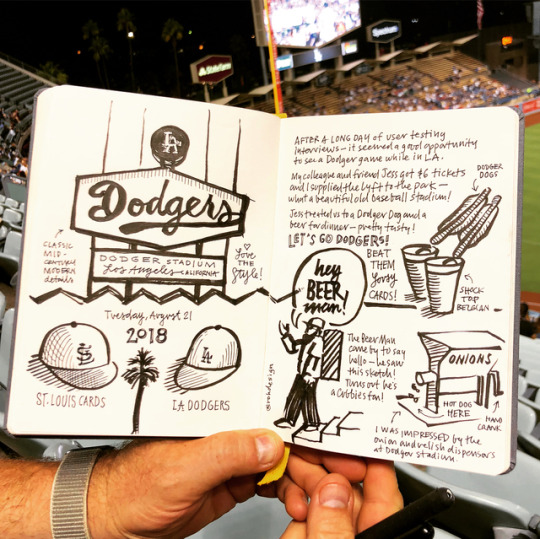 StateFarm
Spectrum
LA
Dodgers
DODGER STADIUM
Los Angeles CALIFORNIA
CLASSIC
MID-
CENTURY
MODERN
details
Love
THE
Style!
Tuesday, August 21
2018
STL
ST. LOUIS CARDS
LA
LA DODGERS
@rohdesign
AFTER A LONG DAY of user testing
interviews – it seemed a good opportunity
to see a Dodger game while in L.A.
My colleague and friend Jess got $6 tickets
and I supplied the Lyft to the park –
what a beautiful old baseball stadium!
Jess treated us to a Dodger Dog and a
beer for dinner – pretty tasty!
LET'S GO DODGERS!
BEAT
THEM
lousy
CARDS!
DODGER
DOGS
SHOCK
TOP
BELGIAN
hey
BEER
man!
The Beer Man
came by to say
hello – he saw
this sketch!
Turns out he's
a Cubbies fan!
ONIONS
HOT DOG
HERE
HAND
CRANK
I WAS IMPRESSED by the
onion and relish dispensers
at Dodger Stadium.